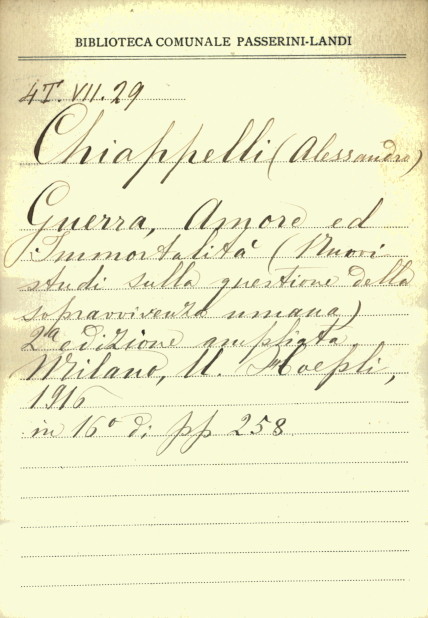 BIBLIOTECA COMUNALE PASSERINI-LANDI
4T.VII.29
Chiappelli (Alessandro)
Guerra, Amore ed
Immortalità (Nuovi
studi sulla questione della
sopravvivenza umana)
2ª edizione ampliata
Milano, U. Hoepli,
1916
in 16º di pp 258